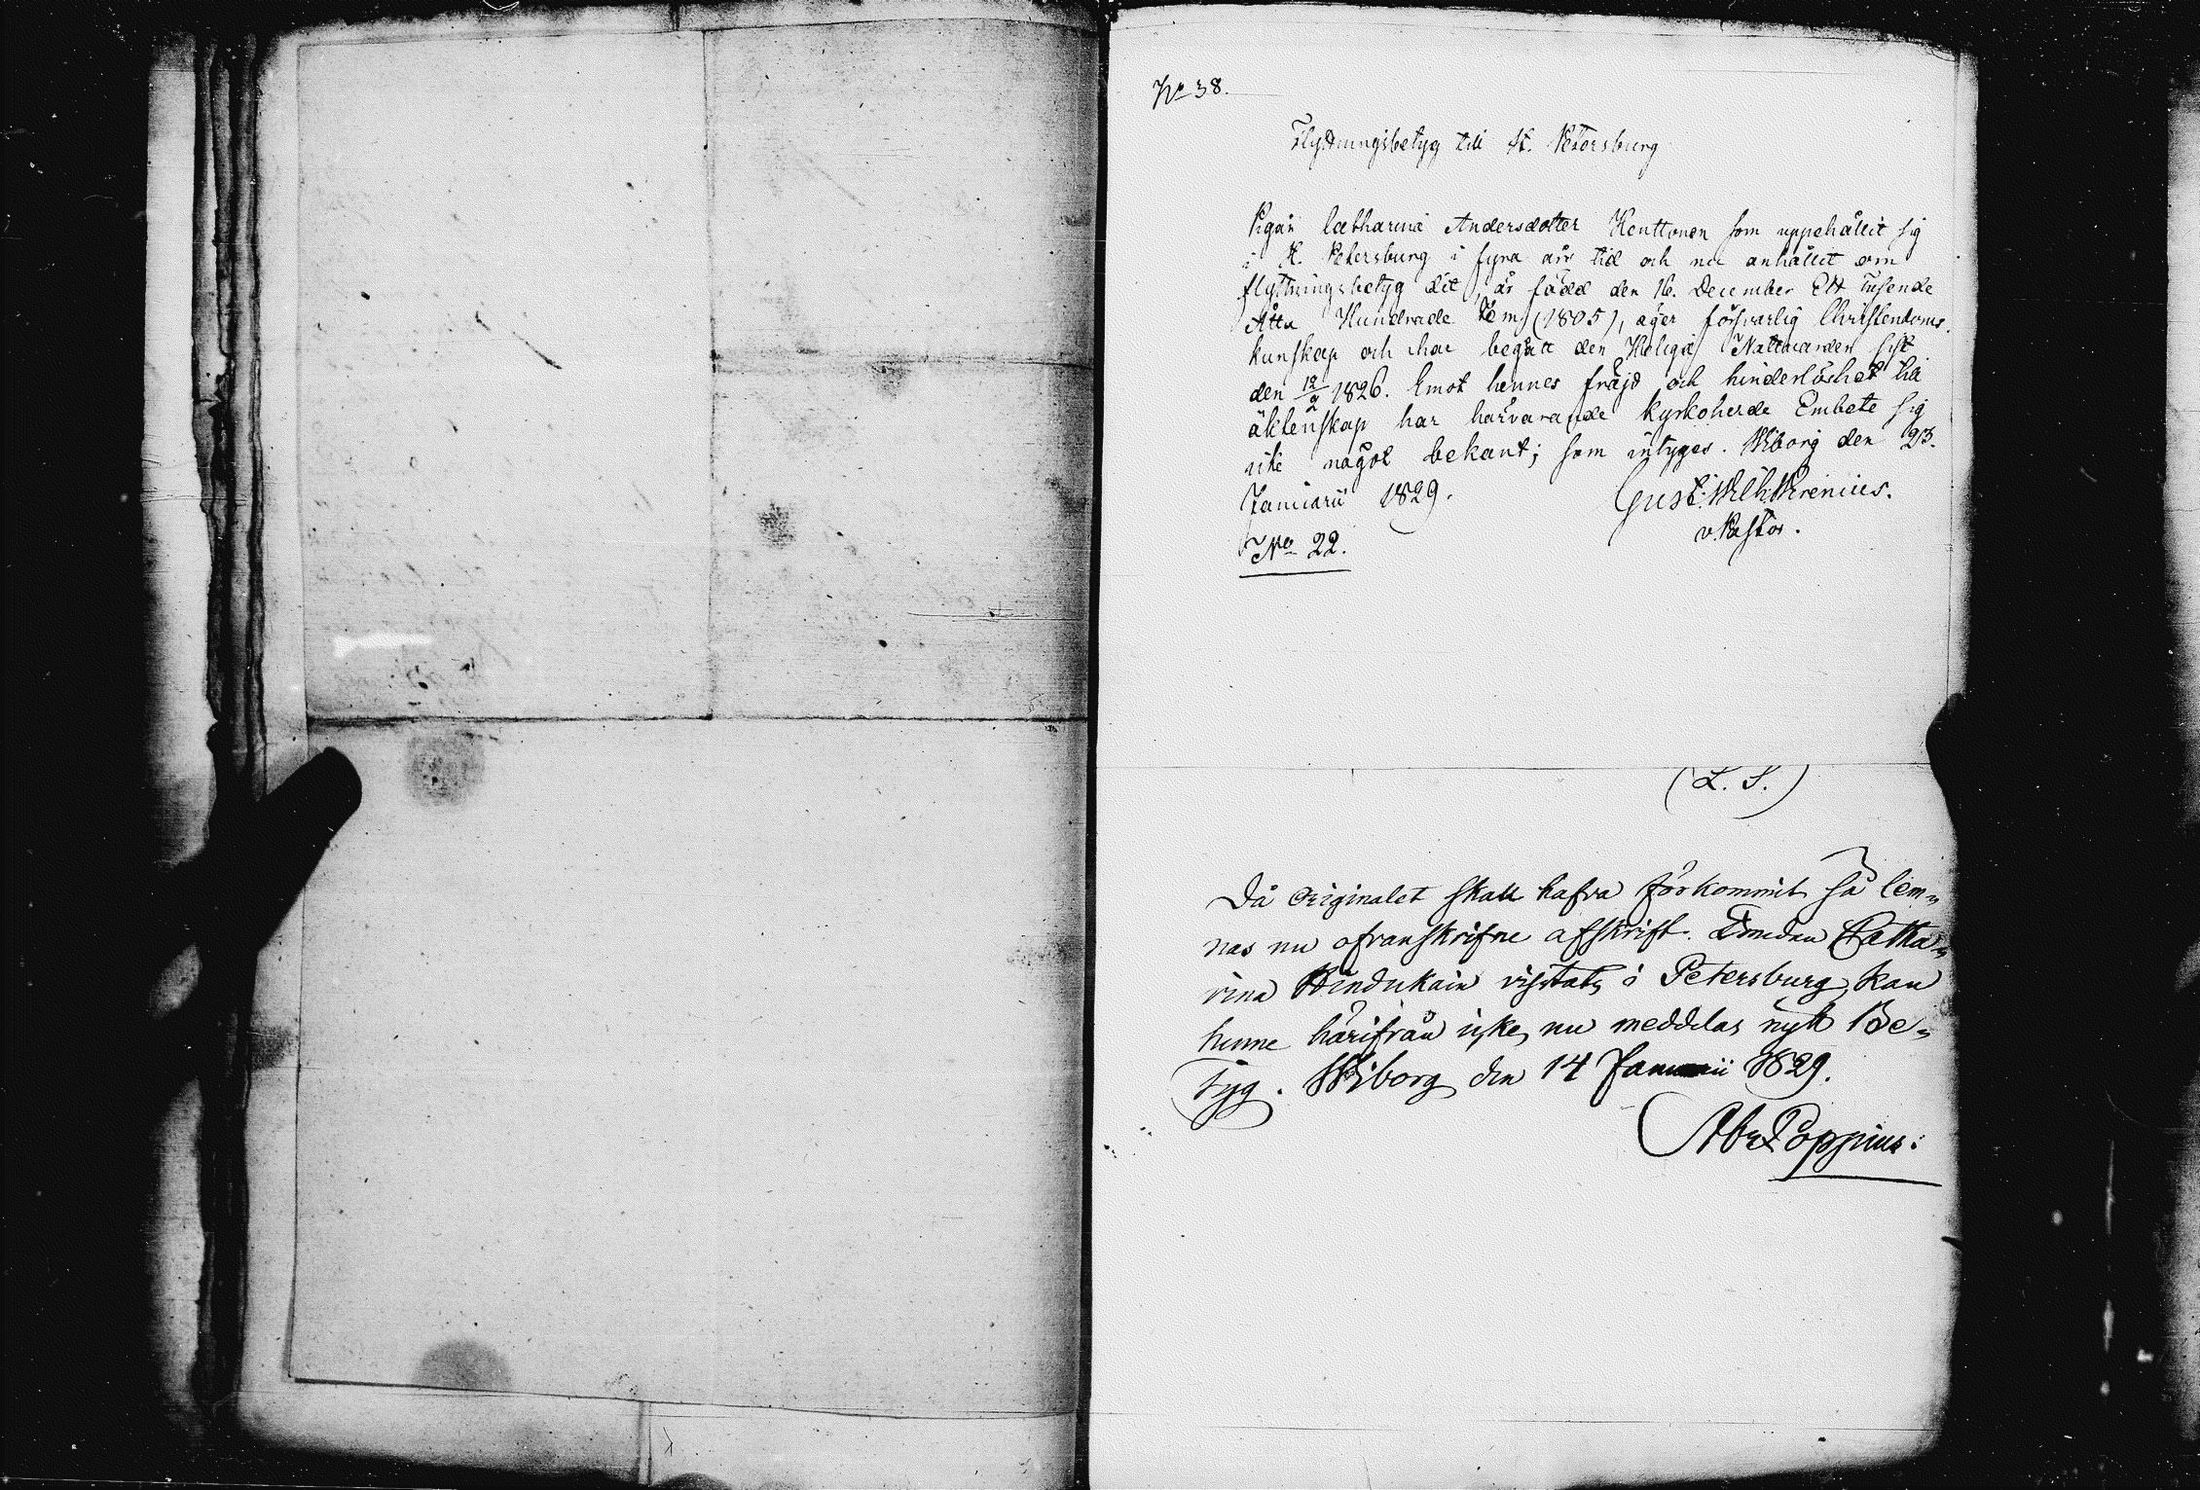 No 38.
Flyttningsbetyg till St. Petersburg
Pigan Catharina Andersdotter Kenttonen som uppehållit sig
i St. Petersburg i fyra års tid och nu anhållit om
flyttningsbetyg dit, är född den 16. December Ett Tusende
Åtta Hundrade Fem (1805), äger försvarlig Christendoms
kunskap och har begått den Heliga Nattvarden sist
den 12/2 1826. Emot hennes fräjd och hinderlöshet till
äktenskap har härvarande Kyrkoherde Embete sig
icke något bekant; som intygas. Wiborg den 23.
Januarii 1829. Gust. Wilh. Krenius.
v. Pastor.
No 22.
(L. S.)
Då Originalet skall hafva förkommit så lem-
nas nu afskrift. Catha-
rina vistats i Petersburg, kan
henne härifrån icke nu meddelas nytt Be-
tyg. Wiborg den 14 Januarii 1829.
Ab. Poppius: